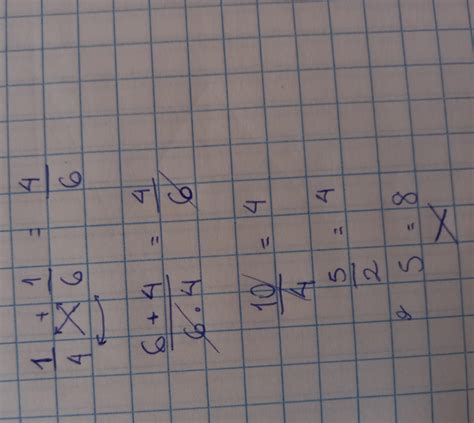 1/4 + 1/6 = 4/6
6+4/6·4 = 4/6
10/4 = 4
5/2 = 4
5 = 8